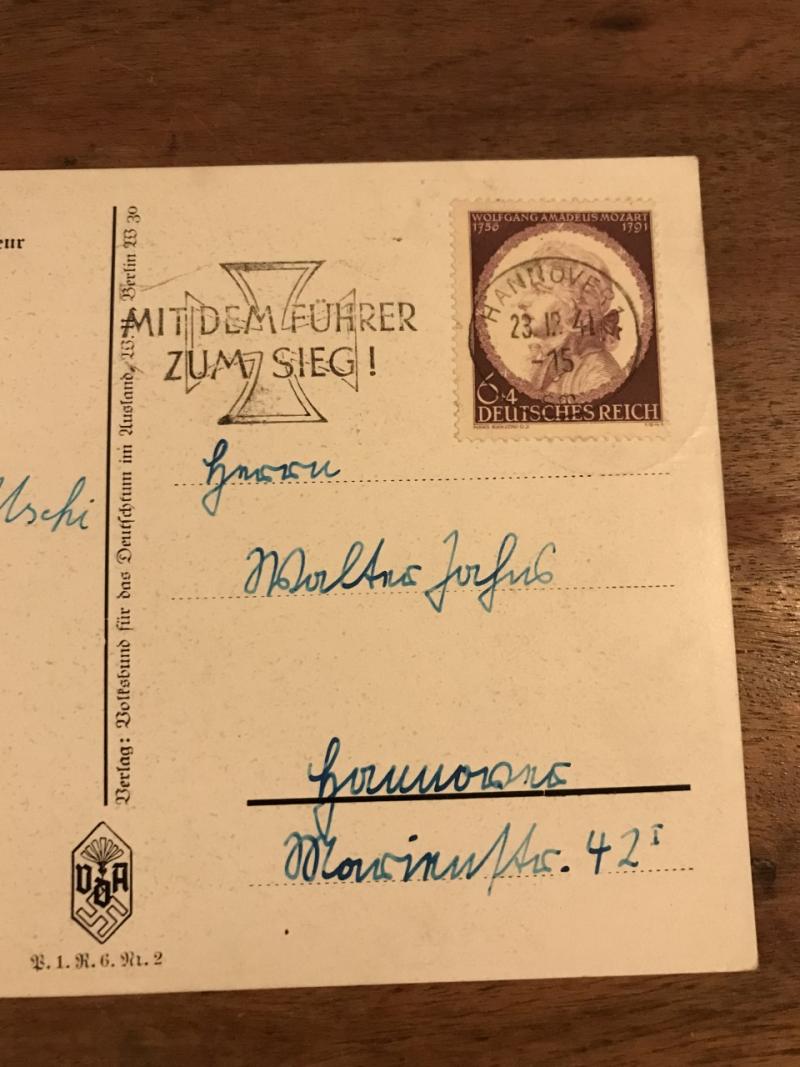 eur
Uschi
Verlag: Volksbund für das Deutschtum im Ausland, Berlin W 30
VDA
P. 1. R. 6. Nr. 2
MIT DEM FÜHRER
ZUM SIEG!
WOLFGANG AMADEUS MOZART
1756 1791
HANNOVER
23.12.41
-15
6+4
DEUTSCHES REICH
Herrn
Walter Jahns
Hannover
Marienstr. 42 I